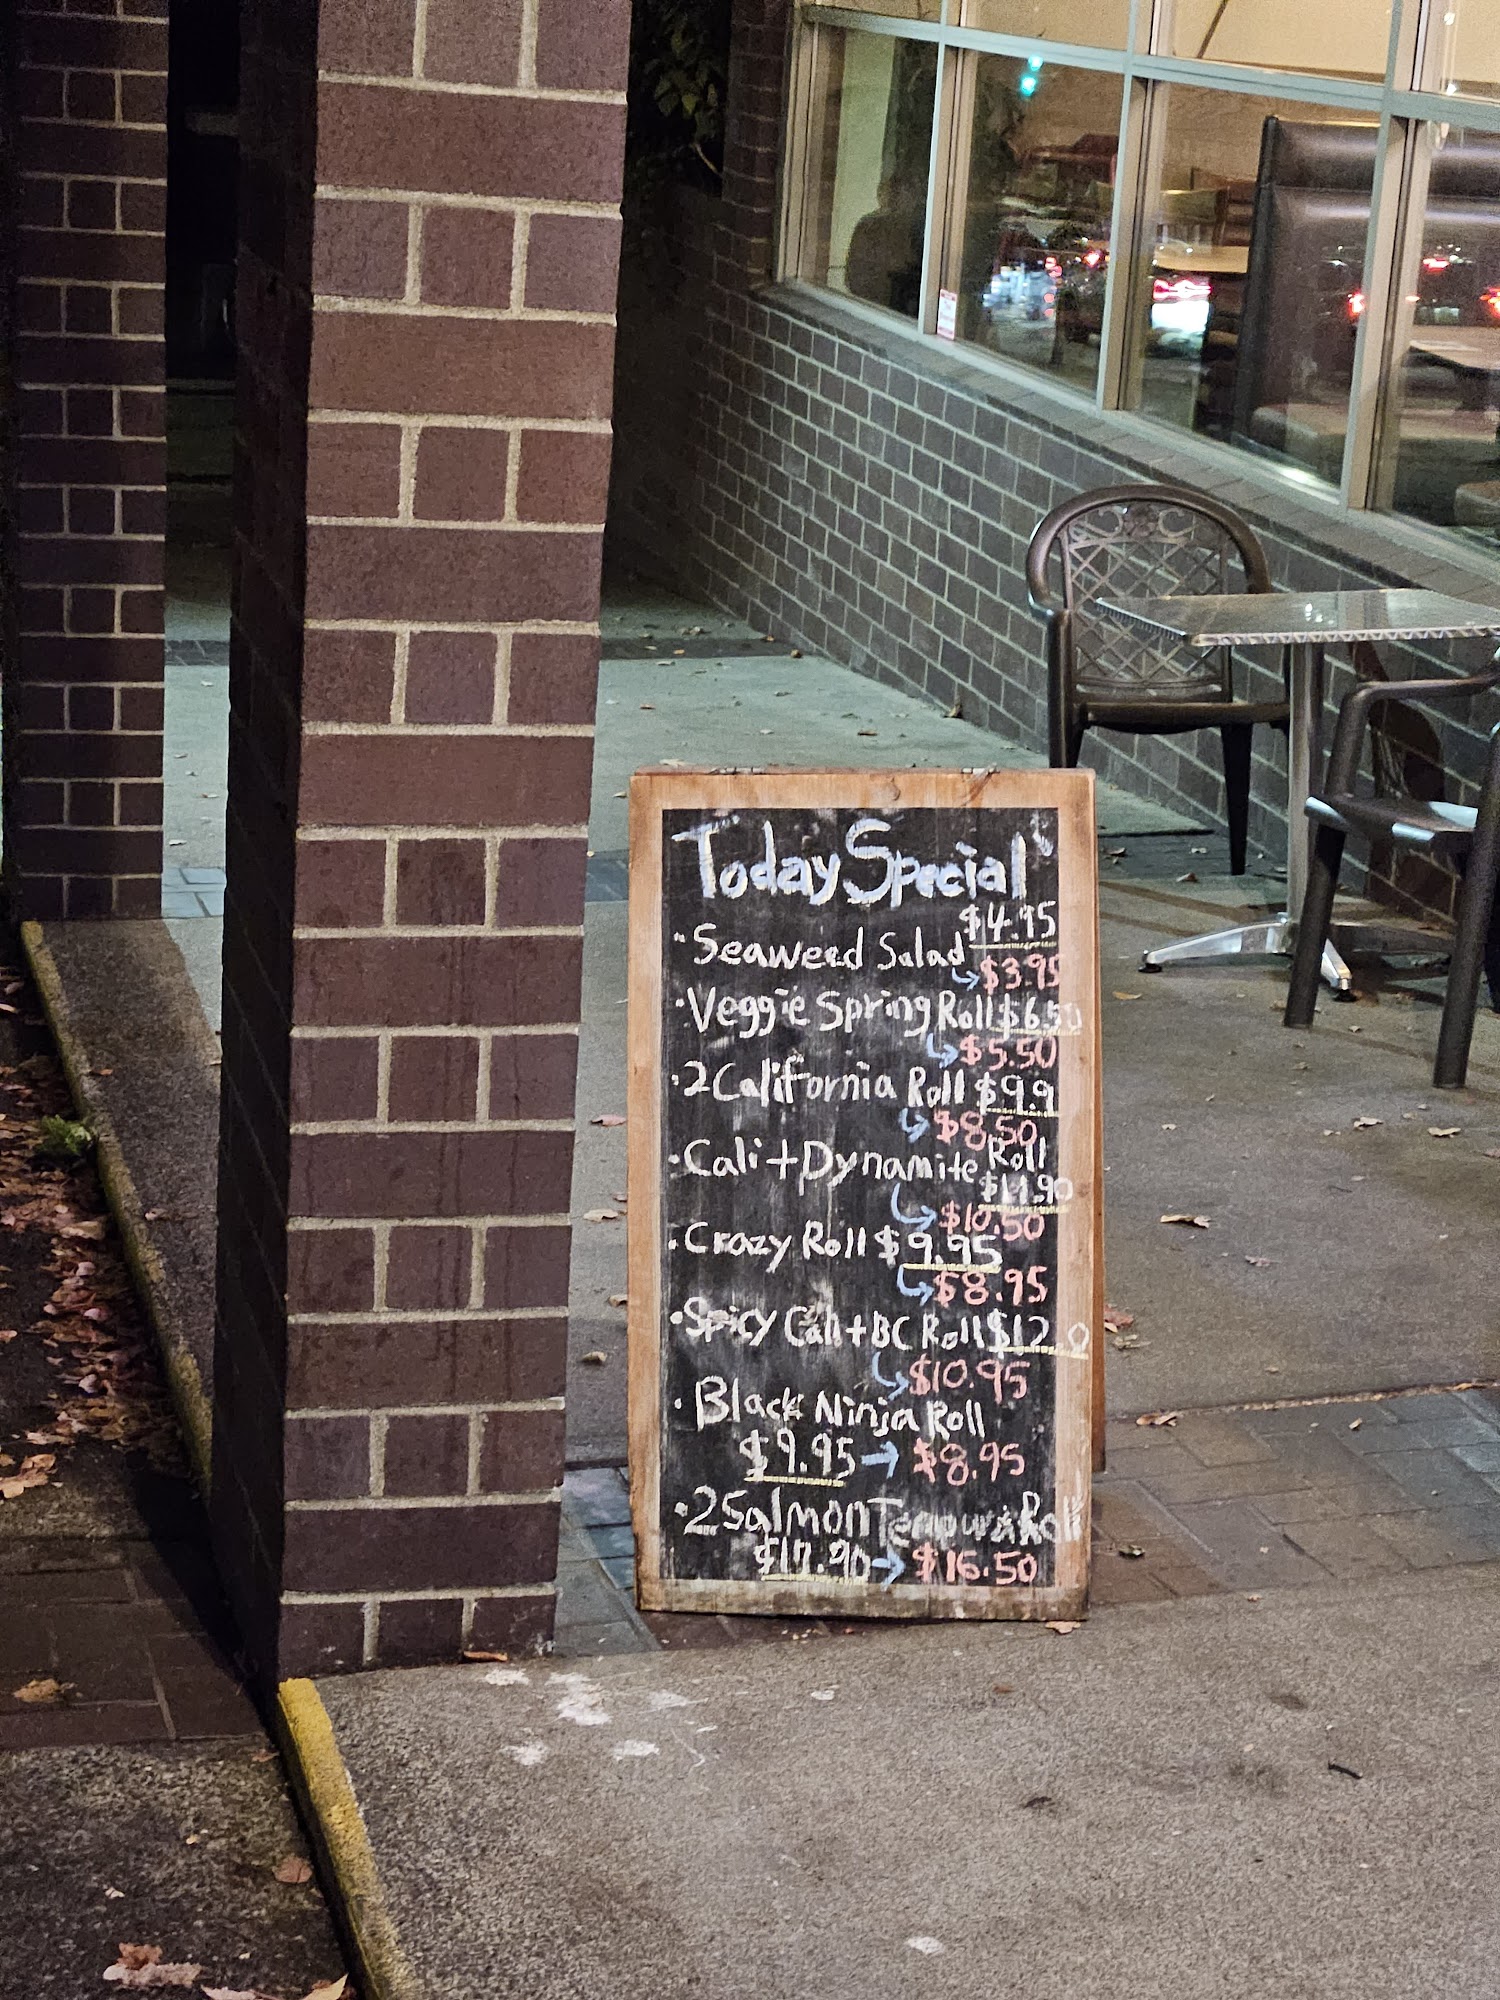 "Today Special"
$4.95
· Seaweed Salad
↳ $3.95
· Veggie Spring Roll $6.50
↳ $5.50
· 2 California Roll $9.9
↳ $8.50
· Cali + Dynamite Roll
$11.90
↳ $10.50
· Crazy Roll $9.95
↳ $8.95
· Spicy Cali + BC Roll $12.0
↳ $10.95
· Black Ninja Roll
$9.95 → $8.95
· 2 Salmon Tempura Roll
$17.90 → $16.50